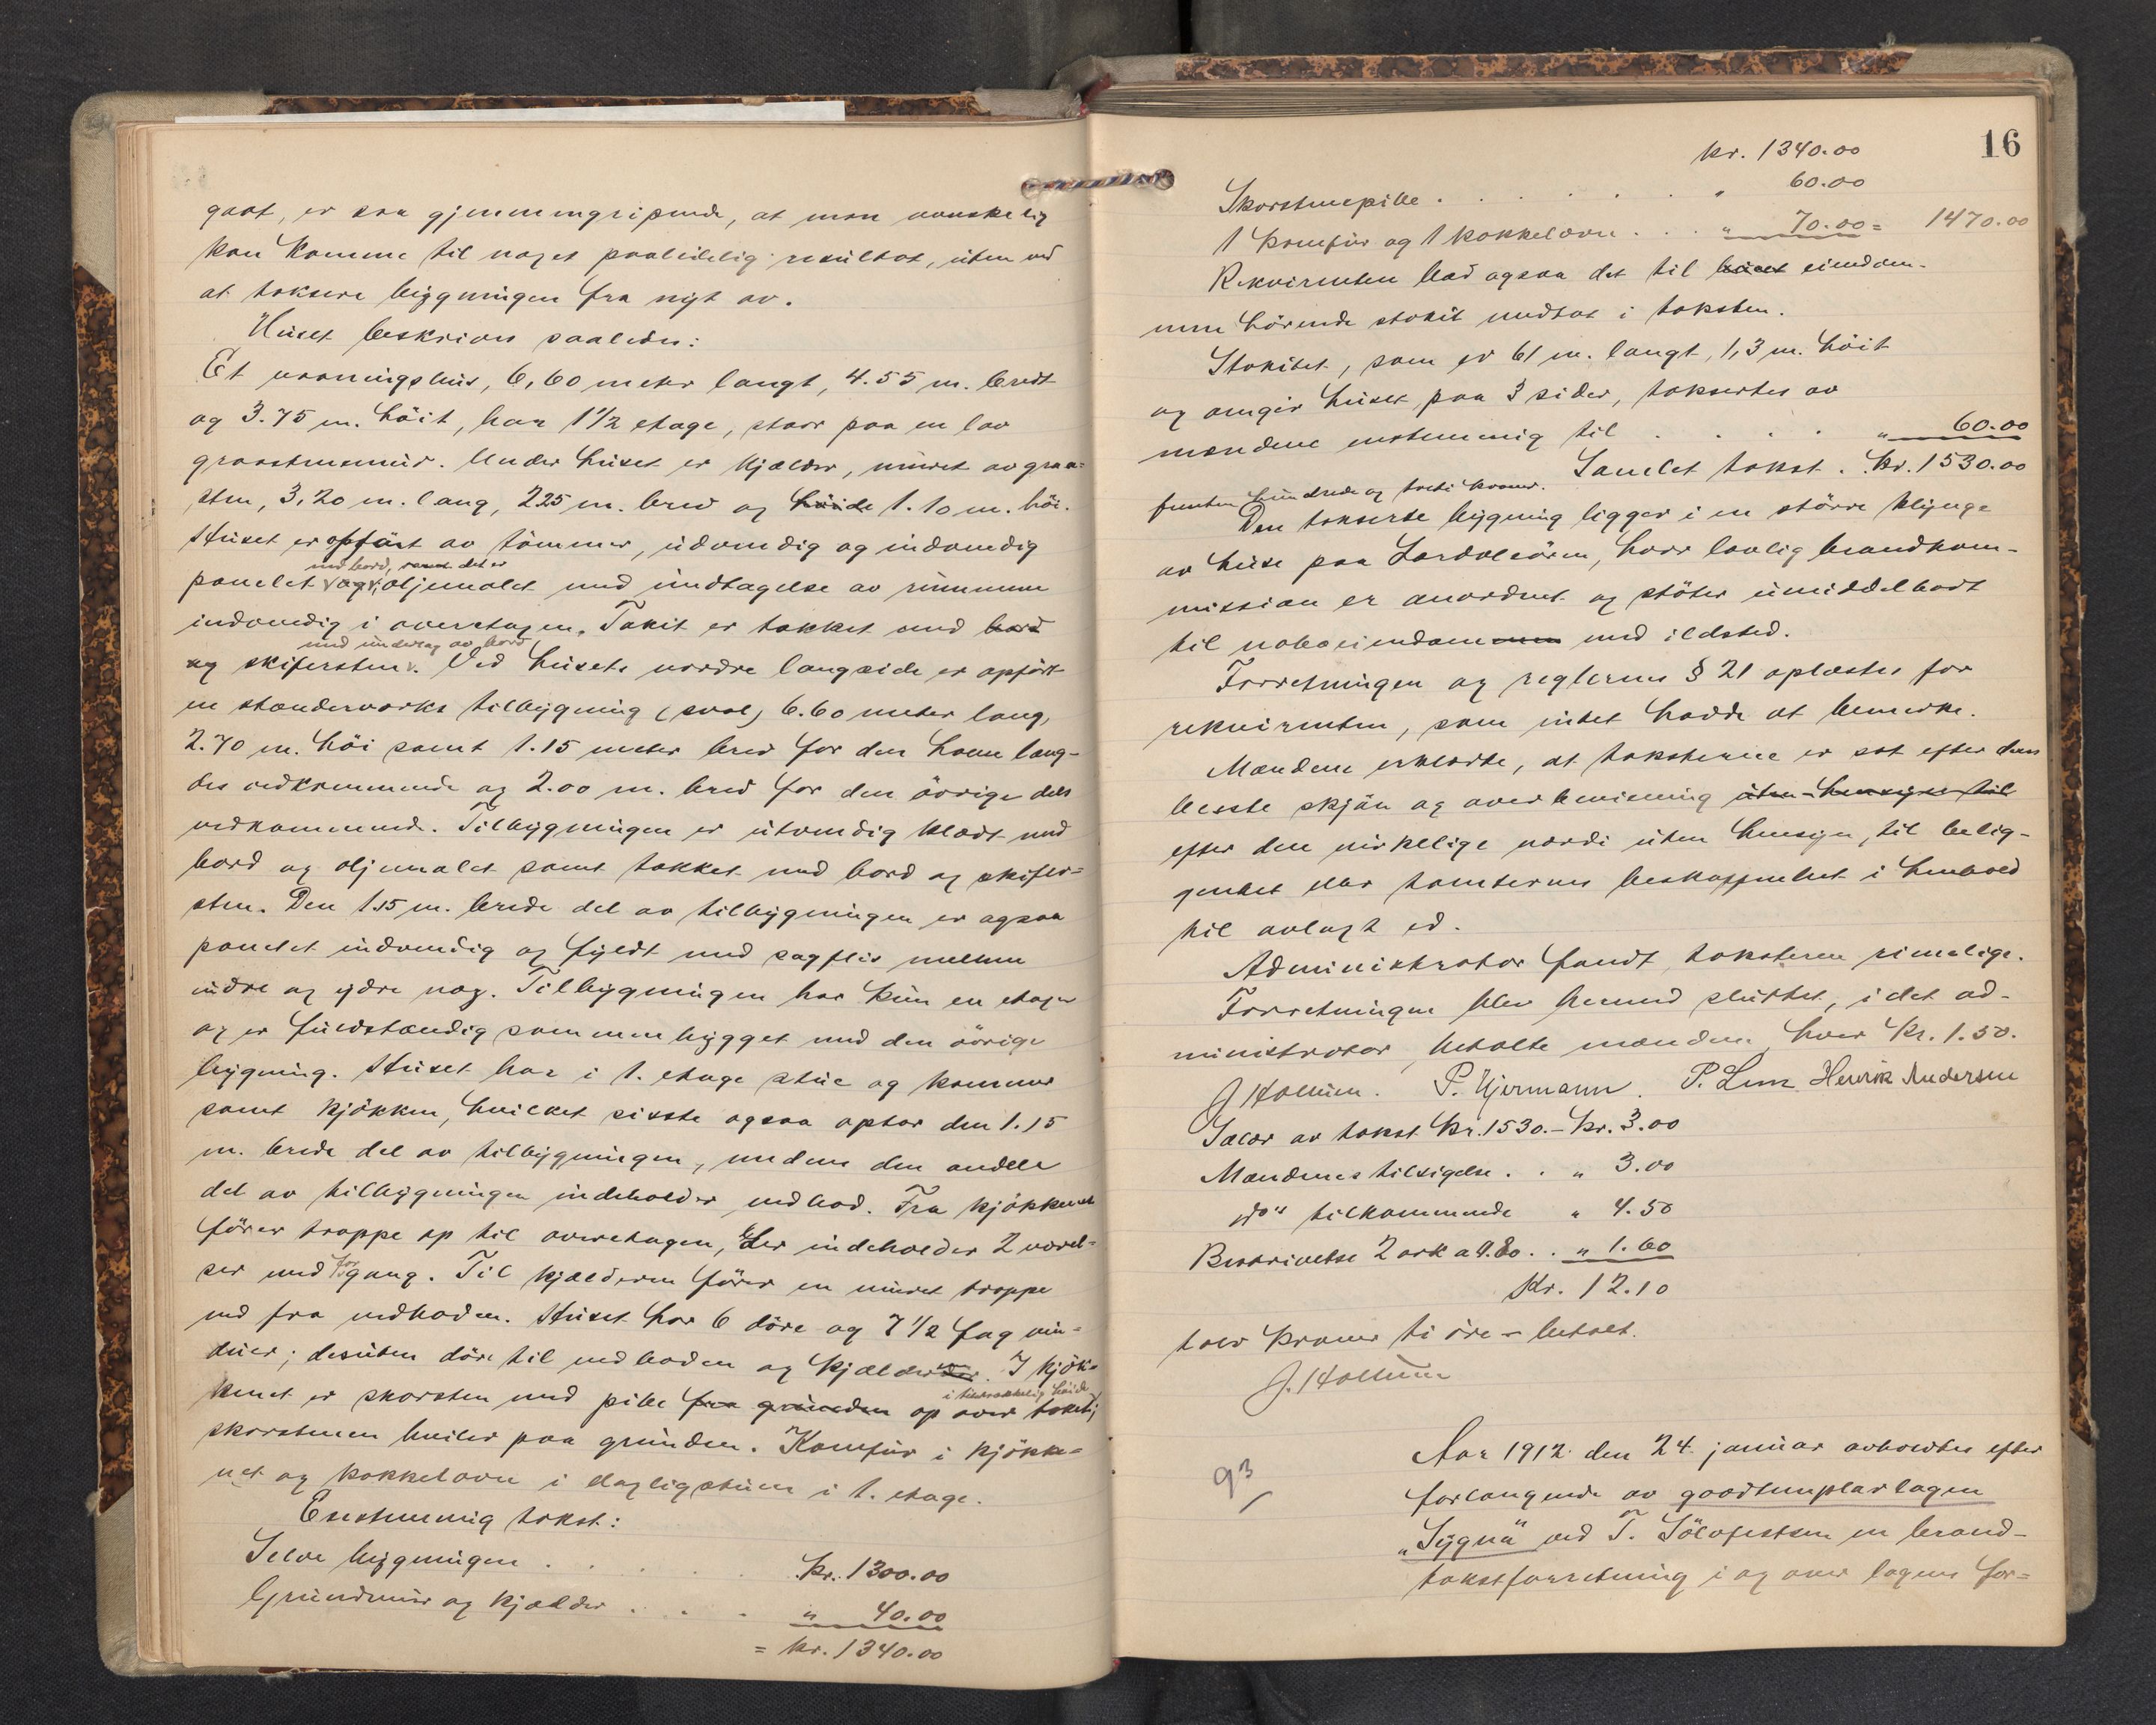 gaat, er saa gjennemgripende, at man vanskelig
kan komme til noget paalidelig resultat, uten ved
at taksere bygningen fra nyt av.
Huset beskrives saaledes:
Et vaaningshus, 6,60 meter langt, 4.55 m. bredt
og 3.75 m. höit, har 1 1/2 etage, staar paa en lav
graastensmur. Under huset er kjælder, muret av graa-
sten, 3,20 m. lang, 2.25 m. bred og höide 1.10 m. höi.
Huset er opfört av tömmer, utvendig og indvendig
med bord, samt det er
panelet og oljemalet med undtagelse av rummene
indvendig i overetagen. Taket er tækket med bord
med underlag av bord
og skifersten. Ved husets nordre langside er opfört
en stænderverks tilbygning (sval) 6.60 meter lang,
2.70 m. höi samt 1.15 meter bred for den halve læng-
des vedkommende og 2.00 m. bred for den övrige dels
vedkommende. Tilbygningen er utvendig klædt med
bord og oljemalet samt tækket med bord og skifer-
sten. Den 1.15 m. brede del av tilbygningen er ogsaa
panelet indvendig og fyldt med sagflis mellem
indre og ydre væg. Tilbygningen har kun en etage
og er fuldstændig sammenbygget med den övrige
bygning. Huset har i 1. etage stue og kammer
samt kjökken, hvilket sidste ogsaa optar den 1.15
m. brede del av tilbygningen, medens den anden
del av tilbygningen indeholder vedbod. Fra kjökkenet
förer trappe op til overetagen, der indeholder 2 værel-
for
ser med gang. Til kjælderen förer en muret trappe
ned fra vedboden. Huset har 6 döre og 7 1/2 fag vin-
duer; desuten döre til vedboden og kjælderen. I kjök-
i tilstrækkelig höide
kenet er skorsten med pibe fra grunden op over taket;
skorstenen hviler paa grunden. Komfur i kjökke-
net og kakkelovn i dagligstuen i 1. etage.
Enstemmig takst:
Selve bygningen . . . . kr. 1300.00
Grundmur og kjælder . . . " 40.00
= kr. 1340.00
16
kr. 1340.00
Skorstenspibe . . . . . . " 60.00
1 komfur og 1 kakkelovn . . . " 70.00 = 1470.00
Rekvirenten bad ogsaa det til huset eiendom-
men hörende stakit medtat i taksten.
Stakitet, som er 61 m. langt, 1,3 m. höit
og omgir huset paa 3 sider, taksertes av
mændene enstemmig til . . . . " 60.00
Samlet takst . kr. 1530.00
femten hundrede og tredti kroner.
Den takserte bygning ligger i en större klynge
av huse paa Lærdalsören, hvor lovlig brandkom-
mission er anordnet og stöter umiddelbart
til naboeiendommen med ildsted.
Forretningen og reglernes § 21 oplæstes for
rekvirenten, som intet hadde at bemerke.
Mændene erklærte, at taksterne er sat efter deres
beste skjön og overbevisning uten hensyn til
efter den virkelige værdi uten hensyn til belig-
genhet eller tomternes beskaffenhet i henhold
til avlagt ed.
Administrator fandt taksterne rimelige.
Forretningen blev hermed sluttet, idet ad-
ministrator betalte mændene hver kr. 1.50.
J Hollum. P. Hjermann. P. Lem Henrik Andersen
Salær av takst kr. 1530.- kr. 3.00
Mændenes tilsigelse . . " 3.00
do" tilkommende " 4.50
Beskrivelse 2 ark a 0.80 . . " 1.60
Kr. 12.10
tolv kroner ti öre - betalt.
J. Hollum
93
Aar 1912 den 24. januar avholdtes efter
forlangende av goodtemplarlagen
„Sygna" ved T. Sölvfestsen en brand-
takstforretning i og over lagens for-